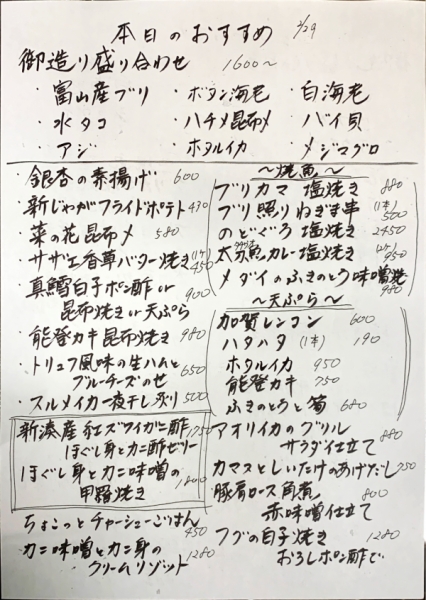 本日のおすすめ 2/29
御造り盛り合わせ 1600〜
・富山産ブリ ・ボタン海老 ・白海老
・水タコ ・ハチメ昆布〆 ・バイ貝
・アジ ・ホタルイカ ・メジマグロ
・銀杏の素揚げ 600
・新じゃがフライドポテト 430
・菜の花昆布〆 580
・サザエ香草バター焼き (1ケ) 450
・真鱈白子ポン酢 or
昆布焼き or 天ぷら 900
・能登カキ昆布焼き 980
・トリュフ風味の生ハムと
ブルーチーズのせ 650
・スルメイカ一夜干し炙り 500
新湊産紅ズワイカニ酢
ほぐし身とカニ酢ゼリー
ほぐし身とカニ味噌の
甲羅焼き
ちょこっとチャーシューごはん
450
カニ味噌とカニ身の
クリームリゾット 1280
〜焼魚〜
ブリカマ 塩焼き 880
ブリ照りねぎま串 (1本) 500
のどぐろ塩焼き 2450
太刀魚カレー塩焼き 950
メダイのふきのとう味噌焼
980
〜天ぷら〜
加賀レンコン 600
ハタハタ (1本) 190
ホタルイカ 950
能登カキ 750
ふきのとうと筍 680
アオリイカのグリル
サラダ仕立て 880
カマスとしいたけのあげだし 750
豚肩ロース角煮 800
赤味噌仕立て
フグの白子焼き 1280
おろしポン酢で